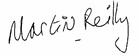 Martin Reilly